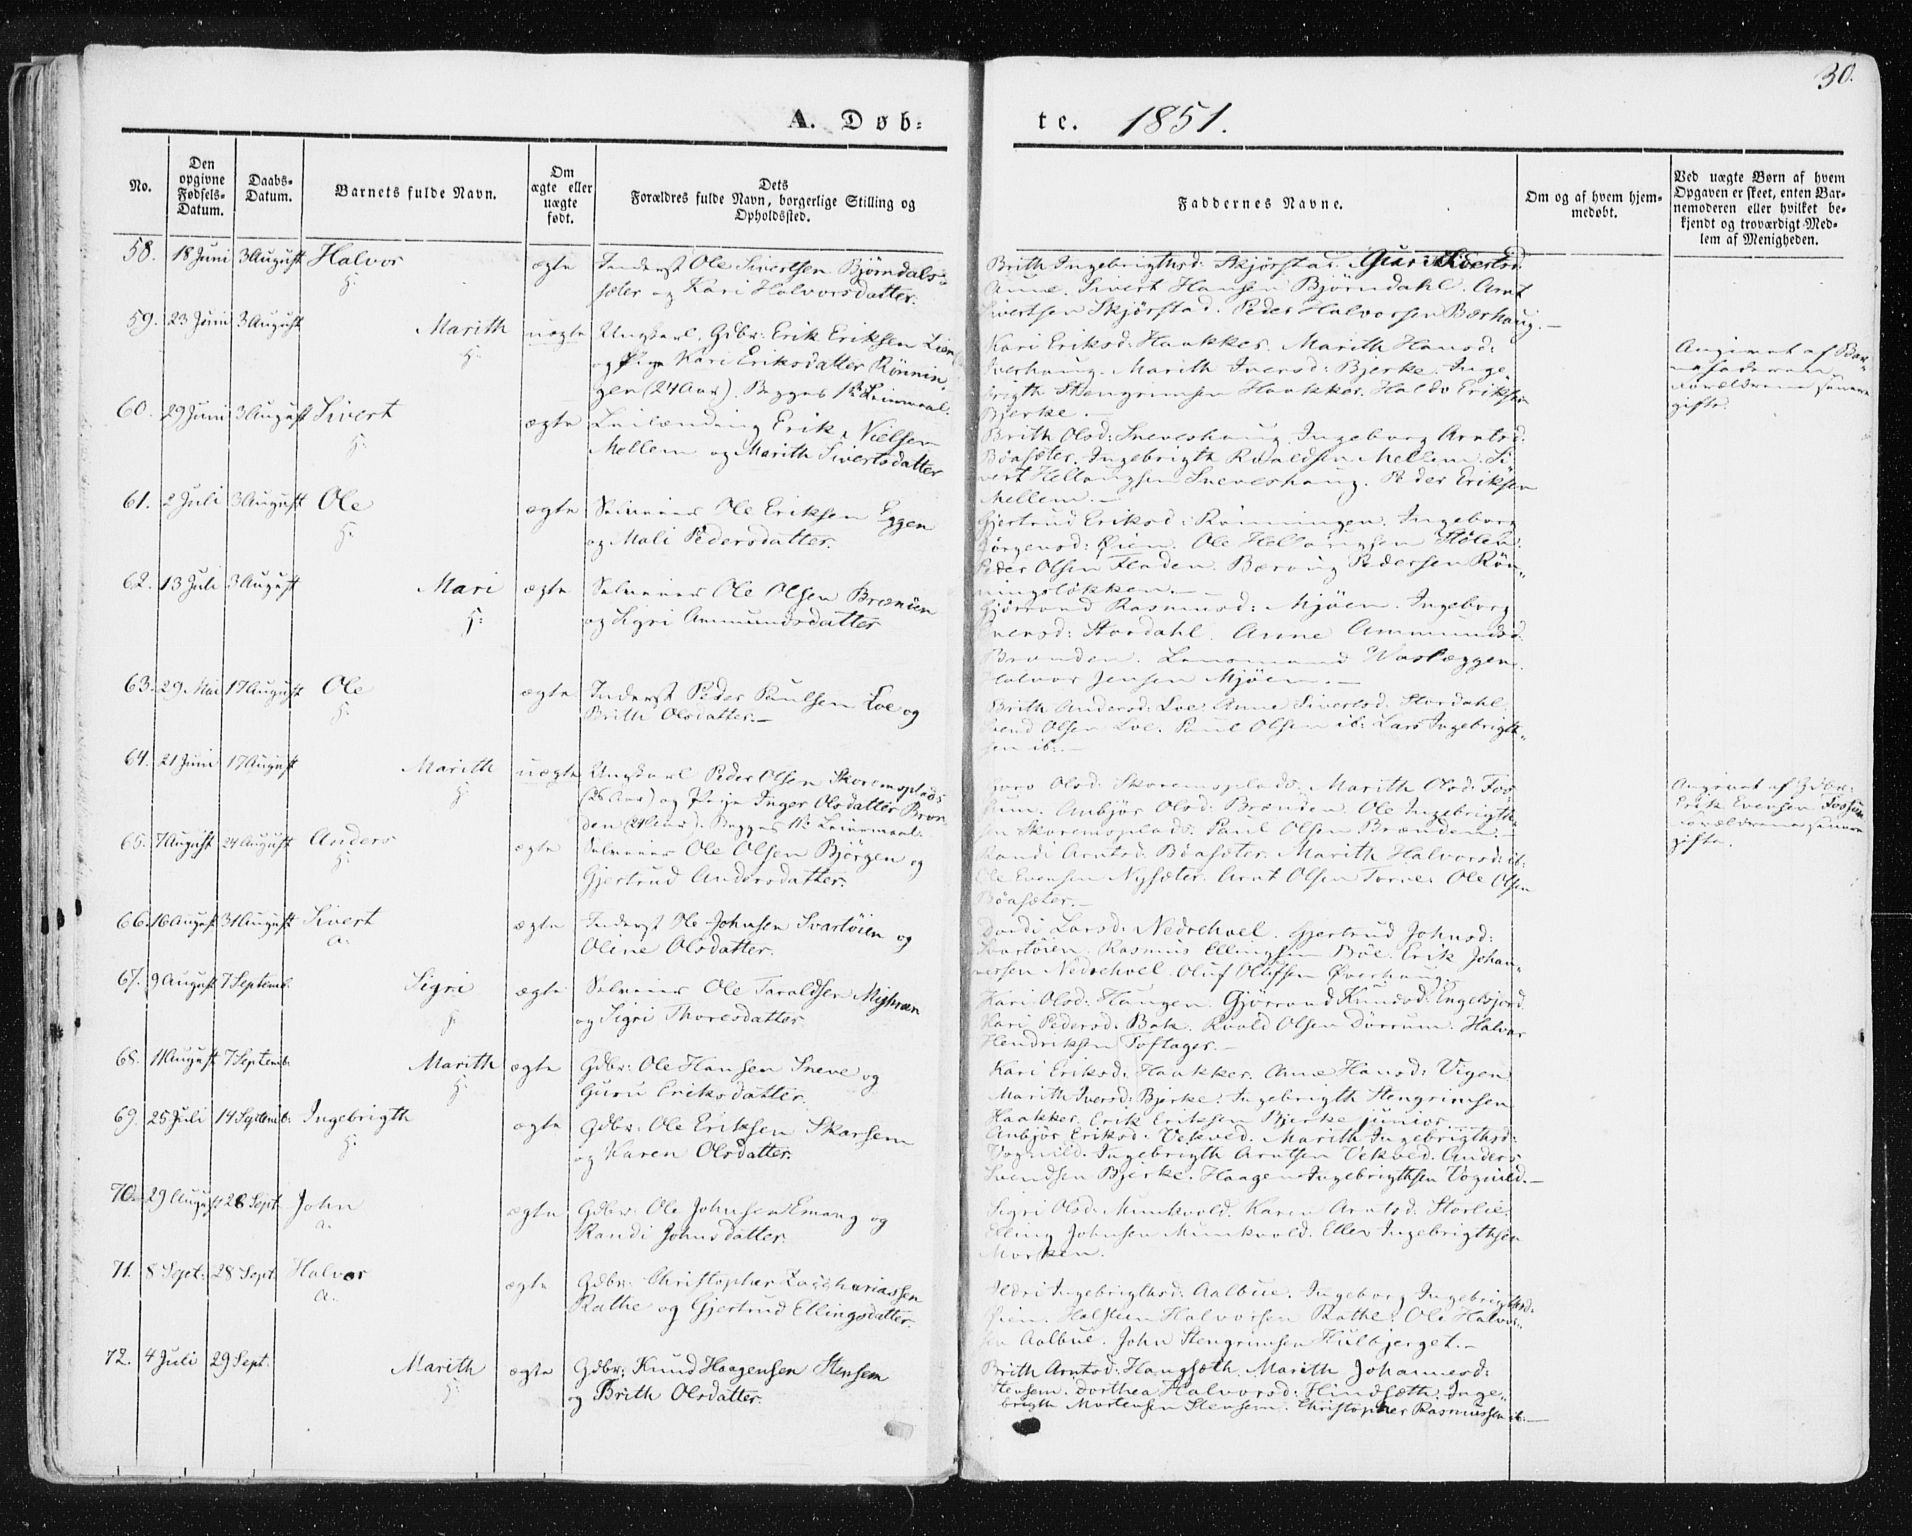 30.
A. Døb= te. 1851.
No.
Den opgivne Fødsels-Datum.
Daabs-Datum.
Barnets fulde Navn.
Om ægte eller uægte født.
Dets Forældres fulde Navn, borgerlige Stilling og Opholdssted.
Faddernes Navne.
Om og af hvem hjem-medøbt.
Ved uægte Børn af hvem Opgaven er skeet, enten Bar-nemoderen eller hvilket be-kjendt og troværdigt Med-lem af Menigheden.
58. 18 Juni 3 August Halvor ægte Inderst Ole Sivertsen Bjørndals=
h: sæter og Kari Halvorsdatter.
Brith Ingebrigthsd: Skjørstad.
Anne. Sivert Hansen Bjørndahl. Arnt
Sivertsen Skjørstad. Peder Halvorsen Bærhaug.—
59. 23 Juni 3 August Marith uægte Ungkarl. Gdbr: Erik Eriksen Lien
h: og Pige Kari Eriksdatter Rønnin,
gen (24 Aar). Begges 1ste Leiermaal.
Kari Eriksd: Haakker. Marith Hansd:
Marith Iversd: Bjerke. Inge,
brigth Stengrimsen Haakker. Haldo Eriksen
Bjerke.—
Angivet af Bar,
nefaderen,
Forældrene senere
gifte.
60. 29 Juni 3 August Sivert ægte Leilænding Erik Nielsen
h: Mellem og Marith Sivertsdatter
Brith Olsd: Sneveshaug. Ingeborg Arntsd:
Böasæter. Ingebrigth Roaldsen Mellem. Si,
vert Hellangsen Sneveshaug. Peder Eriksen
Mellem.—
61. 2 Juli 3 August Ole ægte Selveier Ole Eriksen Eggen
h: og Mali Pedersdatter.
Gjertrud Eriksd: Rønningen. Ingeborg
Jørgensd: Øien. Ole Hellangsen Stølen.
Peder Olsen Fladen. Pedersen Røn,
ningsløkken.—
62. 13 Juli 3 August Mari ægte Selveier Ole Olsen Brænden
h: og Sigri Ammundsdatter
Gjørrond Rasmusd: Mjøen. Ingeborg
Iversd: Stordahl. Anne Ammundsd.
Brænden. Lensmand
Halvor Jensen Mjøen.—
63. 29 Mai 17 August Ole ægte Inderst Peder Paulsen Loe og
h: Brith Olsdatter.—
Brith Andersd: Loe. Anne Sivertsd. Stordahl.
Svend Olsen Loe. Paul Olsen ib: Lars Ingebrigth,
sen ib:—
64. 21 Juni 17 August Marith uægte Ungkarl Peder Olsen Skoremsplads
h: (28 Aar) og Pige Inger Olsdatter Bræn
den (21 Aar). Begges 1ste Leiermaal.
Olsd: Skoremsplads. Marith Olsd: Fos,
sum. Anbjør Olsd: Brænden. Ole Ingebrigth,
sen Skoremsplads. Paul Olsen Brænden.—
Angivet af Gdbr:
Erik Evensen Fossum
Forældrene senere
gifte.
65. 7 August 24 August Anders ægte Selveier Ole Olsen Bjørgen og
h: Gjertrud Andersdatter.
Randi Arntsd: Böasæter. Marith Halvorsd: ib.
Ole Evensen Nysæter. Arnt Olsen Torve. Ole Olsen
Böasæter.—
66. 16 August 31 August Sivert ægte Inderst Ole Johnsen Svartøien og
a. Olene Olsdatter.
Dordi Larsd: Nedrehvel. Gjertrud Johnsd:
Svartøien. Rasmus Ellingsen Böe. Erik Johan,
nessen Nedrehvel. Oluf Olufsen Øverhaug.
67. 9 August 7 Septemb. Sigri ægte Selveier Ole Taraldsen
h. og Sigri Thoresdatter.
Kari Olsd: Haugen. Gjørrond Knudsd: Engelsjord.
Kari Pedersd: Bak. Roald Olsen Dørrum. Halvor
Hendriksen Toftager.—
68. 11 August 7 Septemb. Marith ægte Gdbr: Ole Hansen Sneve og
h: Guru Eriksdatter.
Kari Eriksd: Haakker. Ane Hansd: Vigen
Marith Iversd: Bjerke. Ingebrigth Stengrimsen
Haakker. Erik Eriksen Bjerke junior.
69. 25 Juli 14 Septemb: Ingebrigth ægte Gdbr: Ole Eriksen Skarsem
h: og Karen Olsdatter.
Anbjør Eriksd: Vekved. Marith Ingebrigthsd:
Vognild. Ingebrigth Arntsen Vekved. Anders
Svendsen Bjerke. Haagen Ingebrigthsen Vognild.—
70. 29 August 28 Sept. John ægte Gdbr: Ole Johnsen Emaug og
a. Randi Johnsdatter.
Sigri Olsd: Munkvold. Karen Arntsd. Storlie.
Elling Johnsen Munkvold. Ellev Ingebrigthsen
Morken.
71. 8 Sept: 28 Sept. Halvor ægte Gdbr: Christopher Zachariassen
a. Rathe og Gjertrud Ellingsdatter.
Ildri Ingebrigthsd: Aalbue. Ingeborg Ingebrigthsd.
Øien. Halsten Halvorsen Rathe. Ole Halvor,
sen Aalbue. John Stengrimsen Hulbjerget.—
72. 4 Juli 29 Sept. Marith ægte Gdbr: Knud Haagensen Stensem
h: og Brith Olsdatter.
Brith Arntsd: Haugsæth. Marith Johannesd:
Stensem. Dorthea Halvorsd: Hindsæth. Inge,
brigth Mortensen Stensem. Christopher Rasmussen ib.—